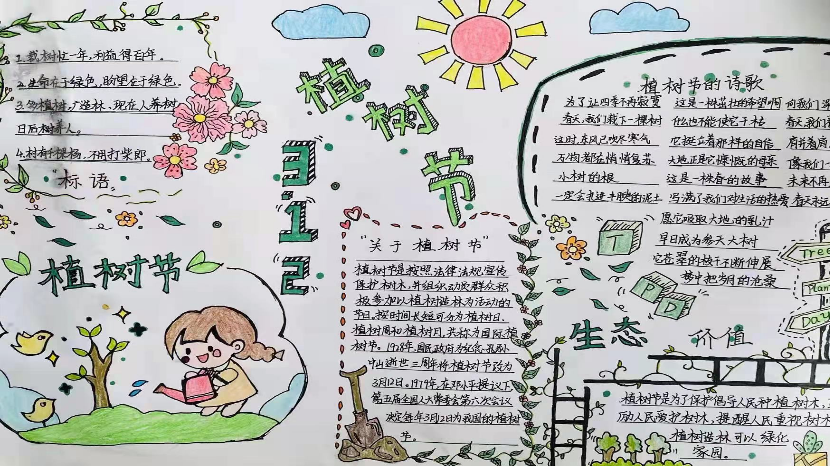 1.栽树忙一年,利益得百年。
2.生命在于绿色,盼望在于绿色。
3.多植树,广造林,现在人养树
日后树养人。
4.村有千棵杨,不用打柴郎。
"标语"
植树节
3.12
植树节
"关于植树节"
植树节是按照法律法规宣传
保护树木,并组织动员群众积
极参加以植树造林为活动的
节日,按时间长短可分为植树日、
植树周和植树月,共称为国际植
树节。1928年,国民政府为纪念孙
中山逝世三周年将植树节改为
3月12日。1979年,在邓小平提议下
第五届全国人大常委会第六次会议
决定每年3月12日为我国的植树
节。
植树节的诗歌
为了让四季不再寂寞 这是一棵茁壮的希望啊
春天,我们栽下一棵树 什么也不能使它干枯 春天,我们
这时,东风已吹尽寒气 它挺立着那样的自信
万物都在悄悄复苏 大地正是它慷慨的母亲
小树的根 这是一株春的故事 未来不再
一定会走进丰腴的泥土 写满了我们对生活的热爱
愿它吸取大地的乳汁
早日成为参天大树
它苍翠的枝干不断伸展
T
P
D
Tree
Plan
Day
生态 价值
植树节是为了保护倡导人民种植树木,
励人民爱护树木,提醒人民重视树木
植树造林可以绿化
家园。